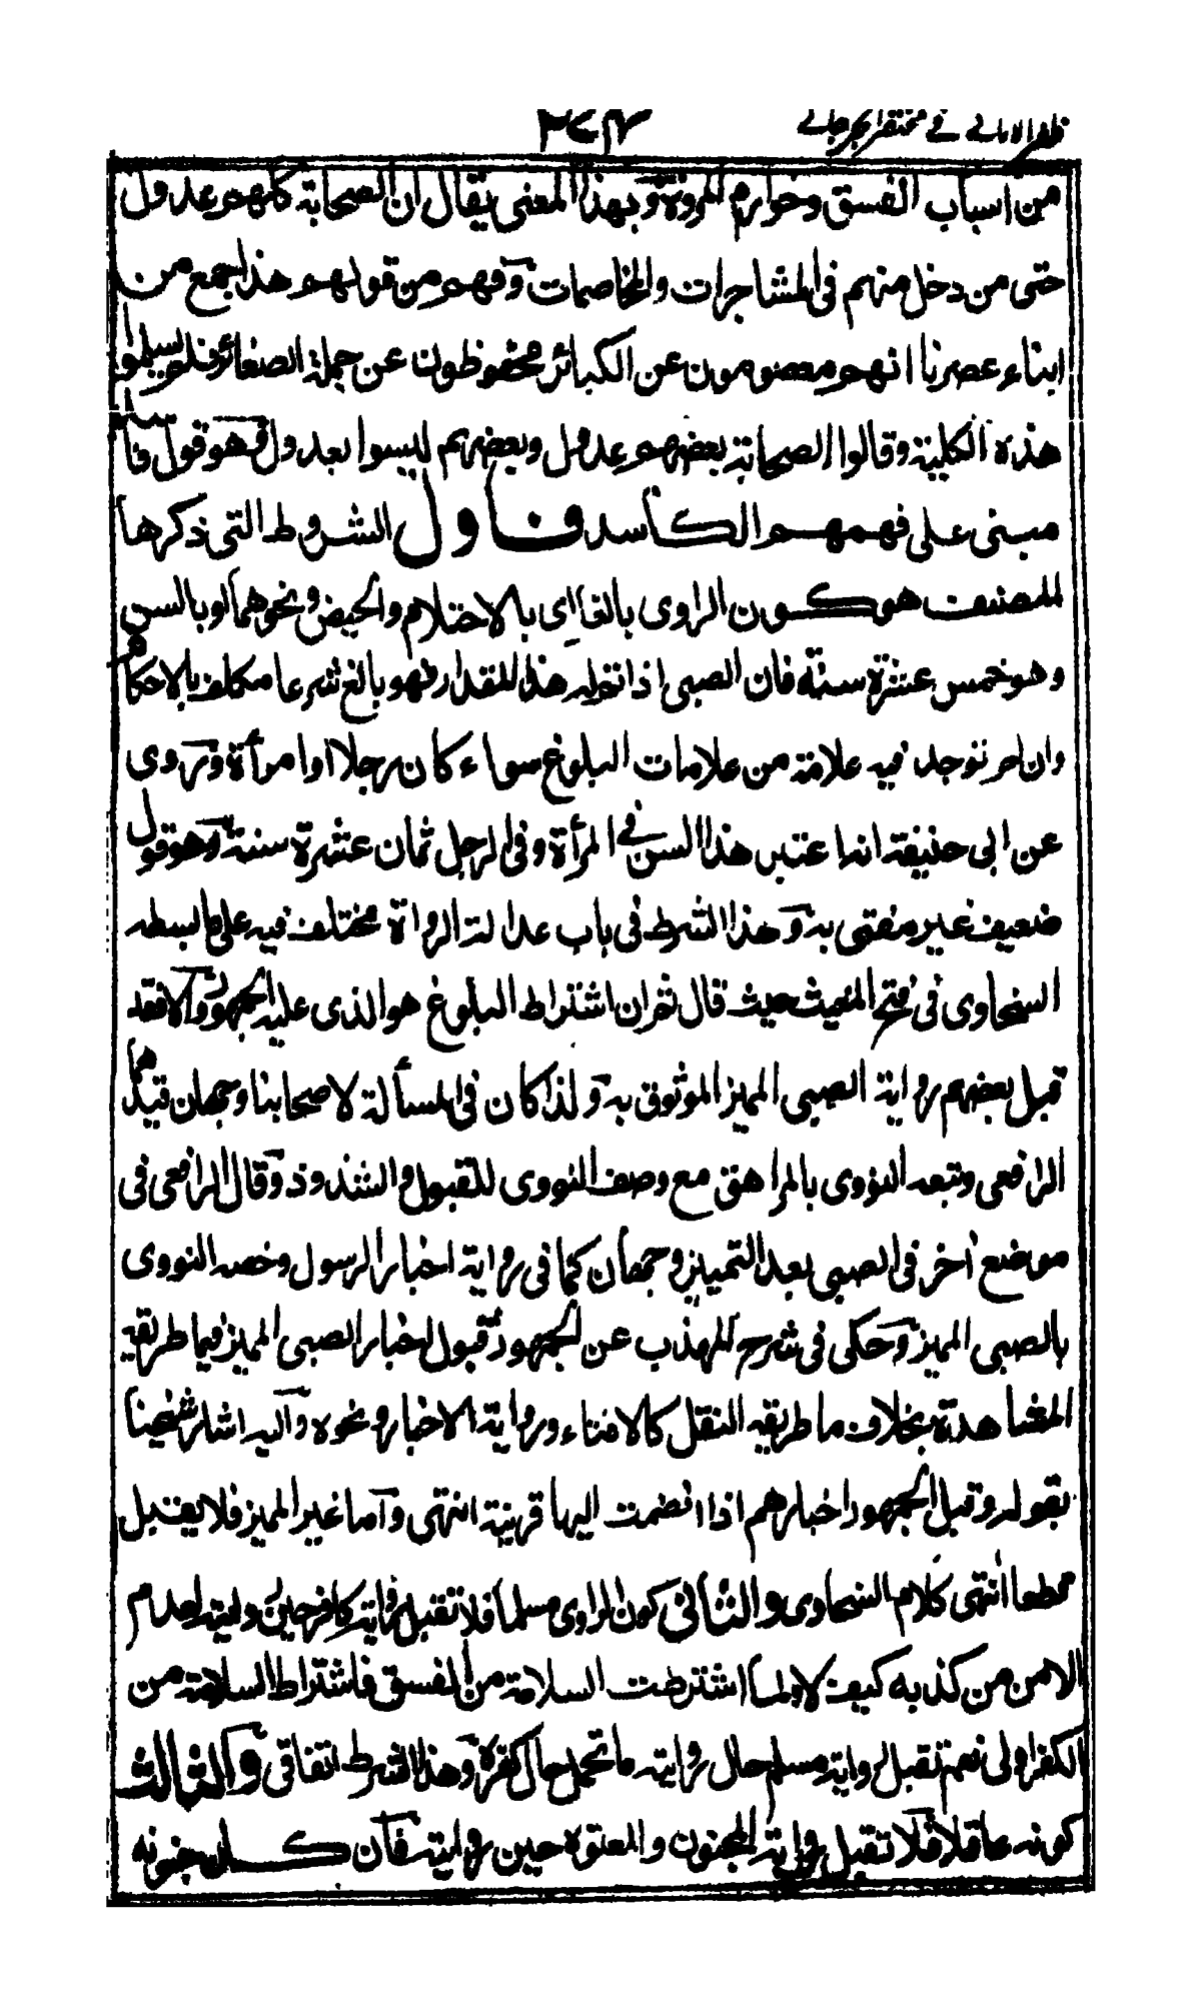 ظفر الاماني في مختصر الجرجاني ٢٧٤
من اسباب الفسق وخوارم المروة وبهذا المعنى يقال ان الصحابة كلهم عدول
حتى من دخل منهم في المشاجرات والمخاصمات وفهم من قولهم هذا جمع من
ابناء عصرنا انهم معصومون عن الكبائر محفوظون عن جملة الصغائر فلم يسلموا
هذه الكلية وقالوا الصحابة بعضهم عدول وبعضهم ليسوا بعدول وهو قول فاسد
مبنى على فهمهم الكاسد فاول الشروط التى ذكرها
المصنف هو كون الراوى بالغا اى بالاحتلام والحيض ونحوهما او بالسن
وهو خمس عشرة سنة فان الصبى اذا تم له هذا المقدار فهو بالغ شرعا مكلف بالاحكام
وان لم توجد فيه علامة من علامات البلوغ سواء كان رجلا او امرأة وروى
عن ابى حنيفة انه اعتبر هذا السن في المرأة وفى الرجل ثمان عشرة سنة وهو قول
ضعيف غير مفتى به وهذا الشرط فى باب عدالة الرواة مختلف فيه على ما بسطه
السخاوى فى فتح المغيث حيث قال ثم ان اشتراط البلوغ هو الذى عليه الجمهور والا فقد
قبل بعضهم رواية الصبى المميز الموثوق به ولذا كان فى المسألة لاصحابنا وجهان قيدهما
الرافعى وتبعه النووى بالمراهق مع وصف النووى للقبول والشذوذ وقال الرافعى فى
موضع اخر فى الصبى بعد التمييز وجهان كما فى رواية اخبار الرسول وخصه النووى
بالصبى المميز وحكى فى شرح المهذب عن الجمهور قبول اخبار الصبى المميز فيما طريقه
المشاهدة بخلاف ما طريقه النقل كالافتاء ورواية الاخبار ونحوه واليه اشار شيخنا
بقوله وقبل الجمهور اخبارهم اذا انضمت اليها قرينة انتهى واما غير المميز فلا يقبل
قطعا انتهى كلام السخاوى والثانى كون الراوى مسلما فلا تقبل رواية كافر حين روايته لعدم
الامن من كذبه كيف لا ولما اشترطت السلامة من الفسق فاشتراط السلامة من
الكفر اولى نعم تقبل رواية مسلم حال روايته ما تحمل حال كفره وهذا الشرط اتفاقى والثالث
كونه عاقلا فلا تقبل رواية المجنون والمعتوه حين روايته فان كان جنونه